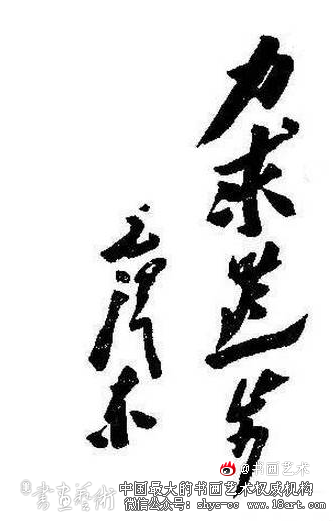 力求進步
毛澤东
@书画艺术
书画藝術
中国最大的书画艺术权威机构
微信公众号：shys-cc www.18art.com